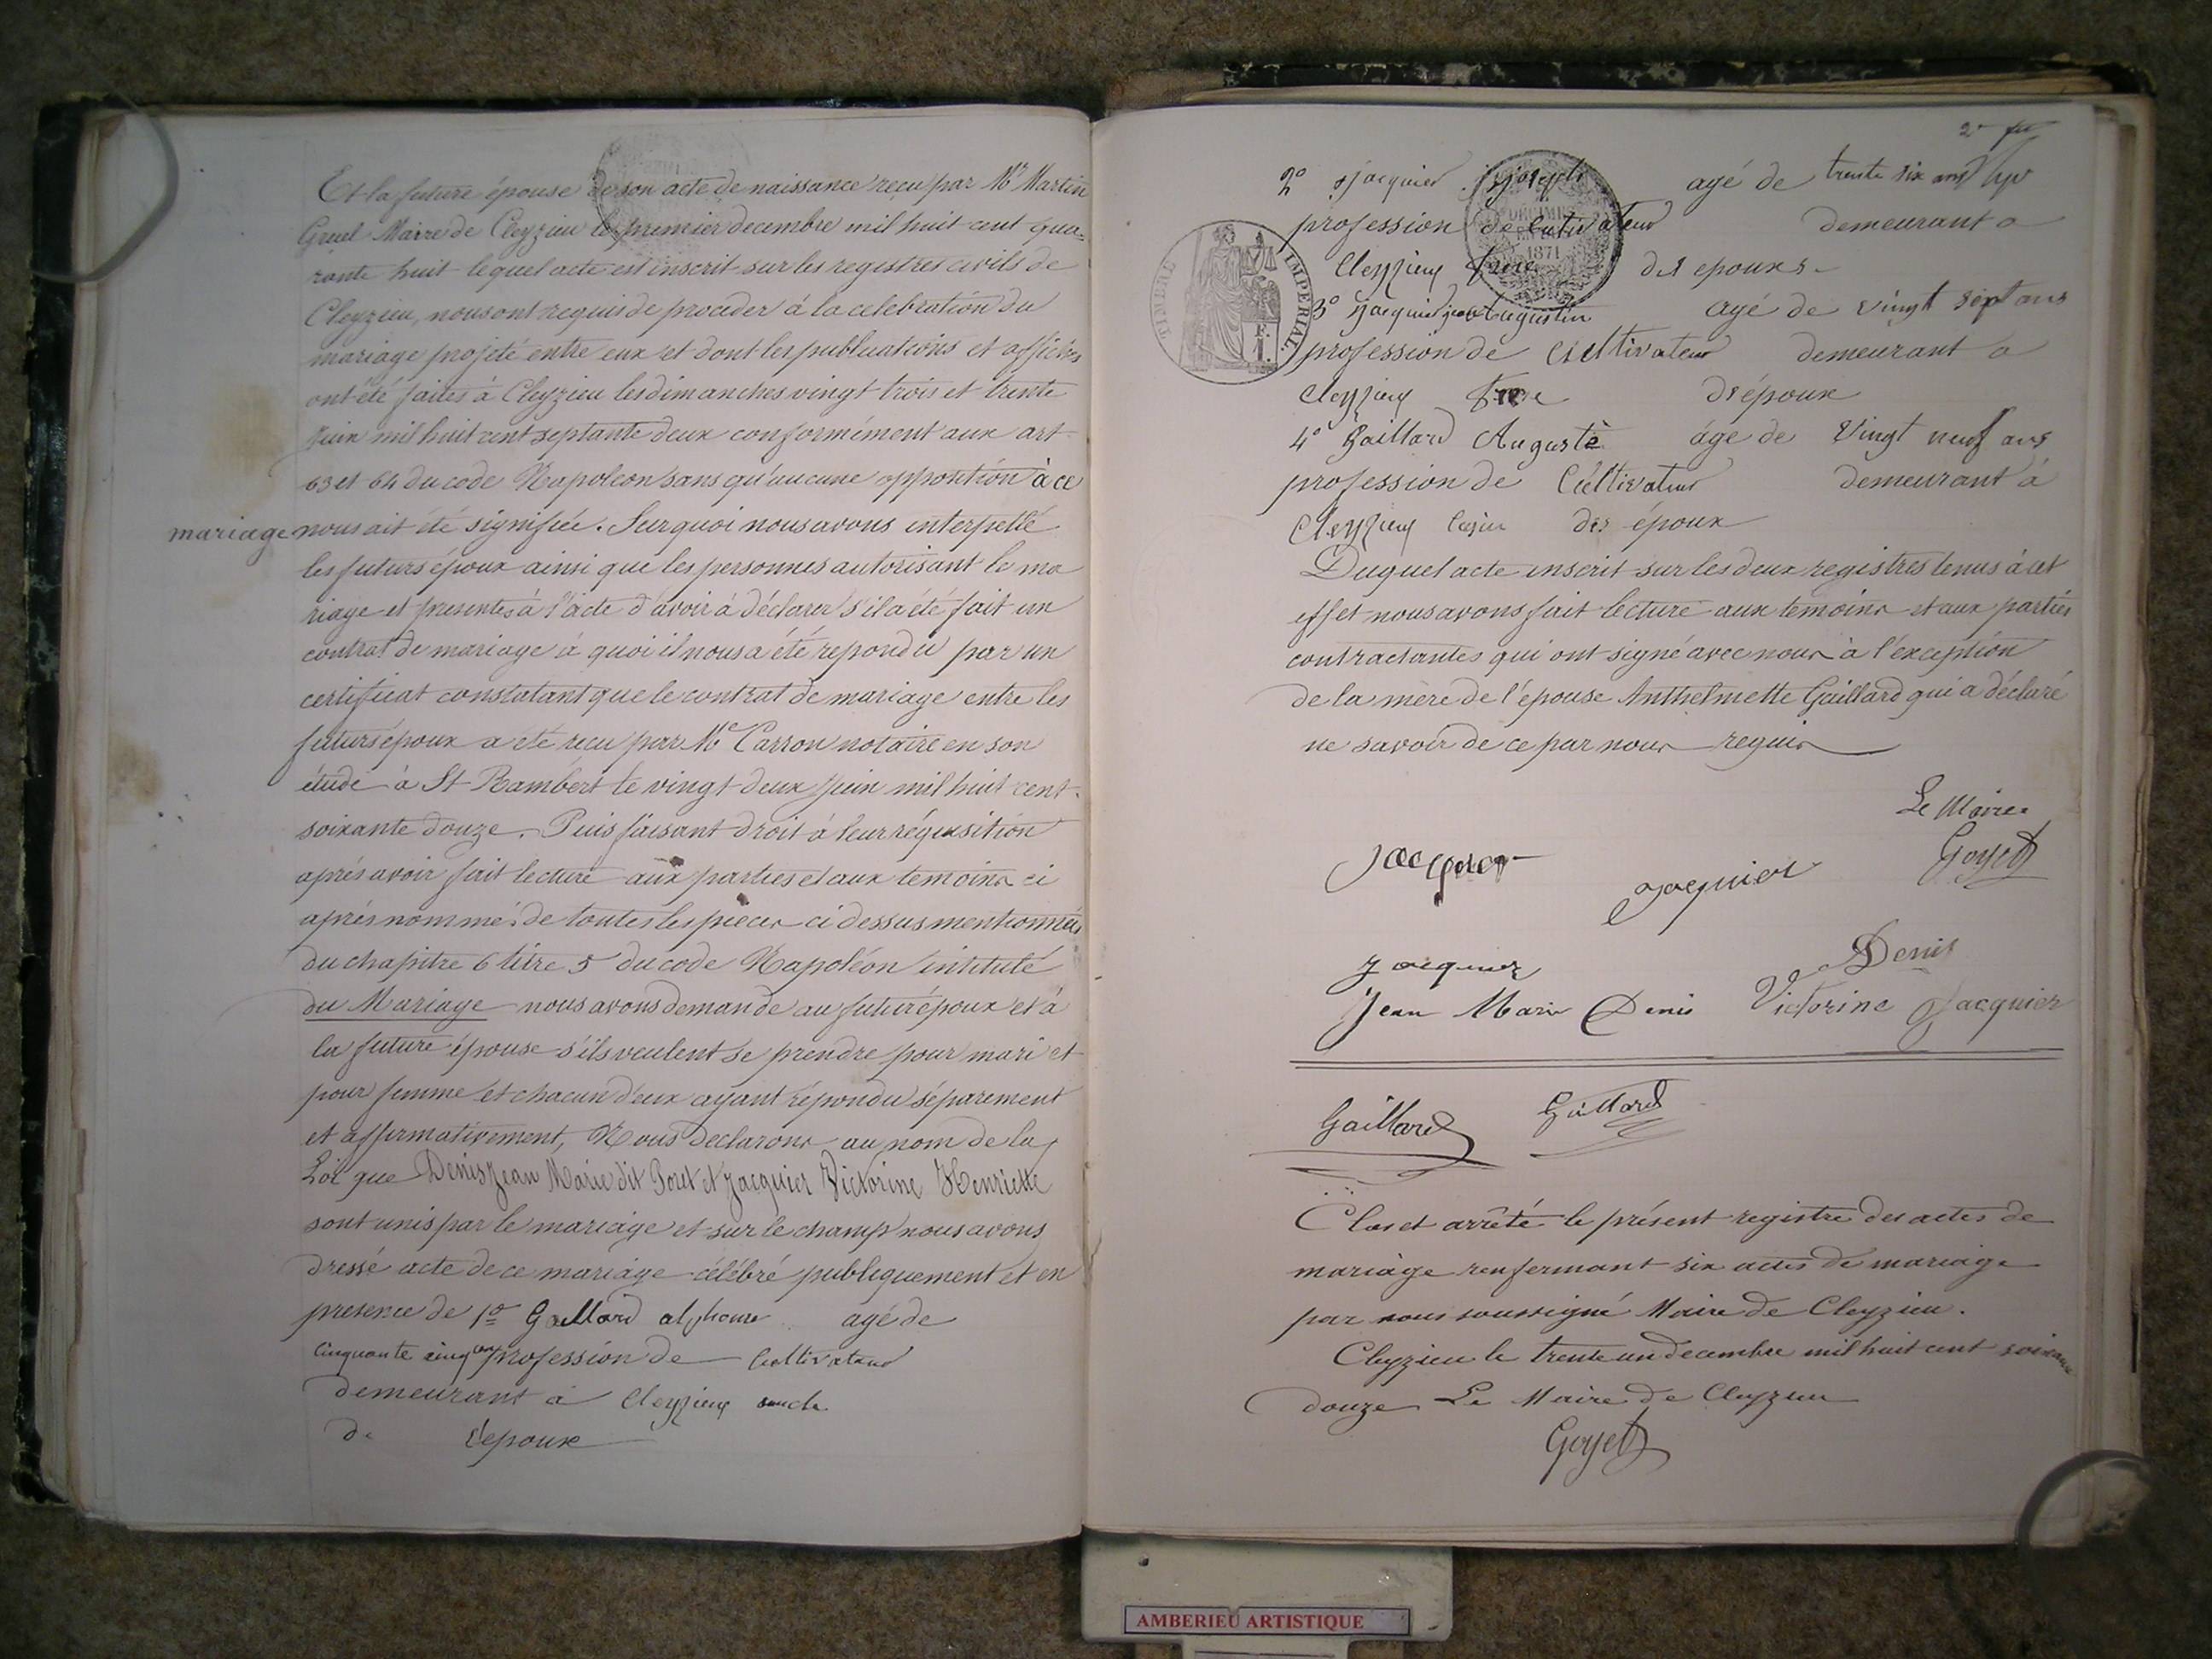 Et la future épouse de son acte de naissance reçu par Mr Martin
Gruel Maire de Cleyzieu le premier decembre mil huit cent qua=
rante huit lequel acte est inscrit sur les registres civils de
Cleyzieu, nous ont requis de proceder à la celebration du
mariage projeté entre eux et dont les publications et affiches
ont été faites à Cleyzieu les dimanches vingt trois et trente
Juin mil huit cent septante deux conformément aux art
63 et 64 du code Napoleon sans qu'aucune opposition à ce
mariage nous ait été signifiée. Sur quoi nous avons interpellé
les futurs époux ainsi que les personnes autorisant le ma
riage et presentes à l'acte d'avoir à déclarer s'il a été fait un
contrat de mariage à quoi il nous a été repondu par un
certificat constatant que le contrat de mariage entre les
futurs époux a été reçu par Me Carron notaire en son
étude à St Rambert le vingt deux Juin mil huit cent
soixante douze. Puis faisant droit à leur réquisition
après avoir fait lecture aux parties et aux temoins ci
après nommés de toutes les pièces ci dessus mentionnées
du chapitre 6 titre 5 du code Napoléon intitulé
du Mariage nous avons demandé au futur époux et à
la future épouse s'ils veulent se prendre pour mari et
pour femme et chacun d'eux ayant répondu séparement
et affirmativement, Nous declarons au nom de la
Loi que Denis Jean Marie dit Poret et Jacquier Victorine Henriette
sont unis par le mariage et sur le champ nous avons
dressé acte de ce mariage célébré publiquement et en
presence de 1o Gaillard alphonse agé de
Cinquante cinq ans profession de Cultivateur
demeurant à Cleyzieu oncle
de l'epoux
2o Jacquier Joseph agé de trente six ans
profession de Cultivateur demeurant a
Cleyzieu frere des epoux
3o Jacquier Jean Augustin agé de vingt sept ans
profession de Cultivateur demeurant a
Cleyzieu frere des époux
4o Gaillard Auguste âge de Vingt neuf ans
profession de Cultivateur demeurant à
Cleyzieu Cousin des époux
Duquel acte inscrit sur les deux registres tenus à cet
effet nous avons fait lecture aux temoins et aux parties
contractantes qui ont signé avec nous à l'exception
de la mère de l'épouse Anthelmette Gaillard qui a déclaré
ne savoir de ce par nous requis
Le Maire
Jacquier Jacquier Goyet
Jacquier Denis
Jean Marie Denis Victorine Jacquier
Gaillard Gaillard
Clos et arrêté le présent registre des actes de
mariage renfermant six actes de mariage
par nous soussigné Maire de Cleyzieu.
Cleyzieu le trente un decembre mil huit cent soixante
douze Le Maire de Cleyzieu
Goyet
TIMBRE IMPERIAL
1871
AMBERIEU ARTISTIQUE